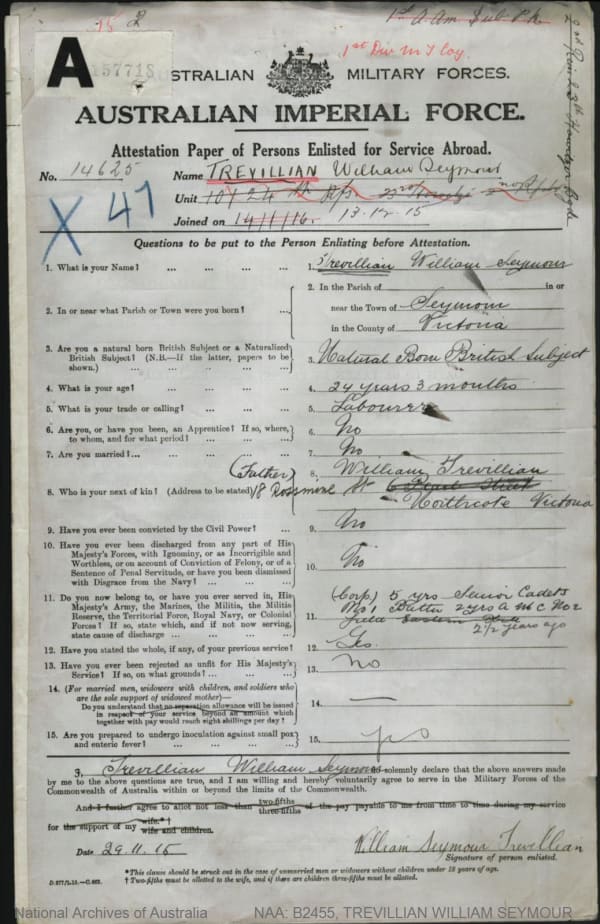 15 2
1st A Am Sub Pk
1st Div M T Coy.
A
15771S
AUSTRALIAN MILITARY FORCES.
AUSTRALIAN IMPERIAL FORCE.
Attestation Paper of Persons Enlisted for Service Abroad.
No. 14625 Name TREVILLIAN William Seymour
X 47
Unit 10/24th Rfs 23rd
Joined on 14/1/16. 13.12.15
Questions to be put to the Person Enlisting before Attestation.
1. What is your Name? ... ... ... 1. Trevillian William Seymour
2. In or near what Parish or Town were you born? ... 2. In the Parish of in or
near the Town of Seymour
in the County of Victoria
3. Are you a natural born British Subject or a Naturalized
British Subject? (N.B.—If the latter, papers to be
shown.) ... ... ... ... 3. Natural Born British Subject
4. What is your age? ... ... ... 4. 24 years 3 months
5. What is your trade or calling? ... ... ... 5. Labourer
6. Are you, or have you been, an Apprentice? If so, where,
to whom, and for what period? ... ... ... 6. No
7. Are you married? ... ... ... ... 7. No
8. Who is your next of kin? (Address to be stated) (Father) 8. William Trevillian
18 Rossmore St 6 Pearl Street
Northcote Victoria
9. Have you ever been convicted by the Civil Power? ... 9. No
10. Have you ever been discharged from any part of His
Majesty's Forces, with Ignominy, or as Incorrigible and
Worthless, or on account of Conviction of Felony, or of a
Sentence of Penal Servitude, or have you been dismissed
with Disgrace from the Navy? ... ... ... 10. No
11. Do you now belong to, or have you ever served in, His
Majesty's Army, the Marines, the Militia, the Militia
Reserve, the Territorial Force, Royal Navy, or Colonial
Forces? If so, state which, and if not now serving,
state cause of discharge ... ... ... ... 11. (Corp.) 5 yrs Senior Cadets
2 yrs A M C No 2
Field
2½ years ago
12. Have you stated the whole, if any, of your previous service? 12. Yes.
13. Have you ever been rejected as unfit for His Majesty's
Service? If so, on what grounds? ... ... 13. No
14. (For married men, widowers with children, and soldiers who
are the sole support of widowed mother)—
Do you understand that no separation allowance will be issued
in respect of your service beyond an amount which
together with pay would reach eight shillings per day? 14. —
15. Are you prepared to undergo inoculation against small pox
and enteric fever? ... ... ... ... 15. yes
I, Trevillian William Seymour do solemnly declare that the above answers made
by me to the above questions are true, and I am willing and hereby voluntarily agree to serve in the Military Forces of the
Commonwealth of Australia within or beyond the limits of the Commonwealth.
And I further agree to allot not less than two-fifths three-fifths of the pay payable to me from time to time during my service
for the support of my wife.*† wife and children.
Date 29.11.15 William Seymour Trevillian
Signature of person enlisted.
*This clause should be struck out in the case of unmarried men or widowers without children under 18 years of age.
† Two-fifths must be allotted to the wife, and if there are children three-fifths must be allotted.
National Archives of Australia NAA: B2455, TREVILLIAN WILLIAM SEYMOUR